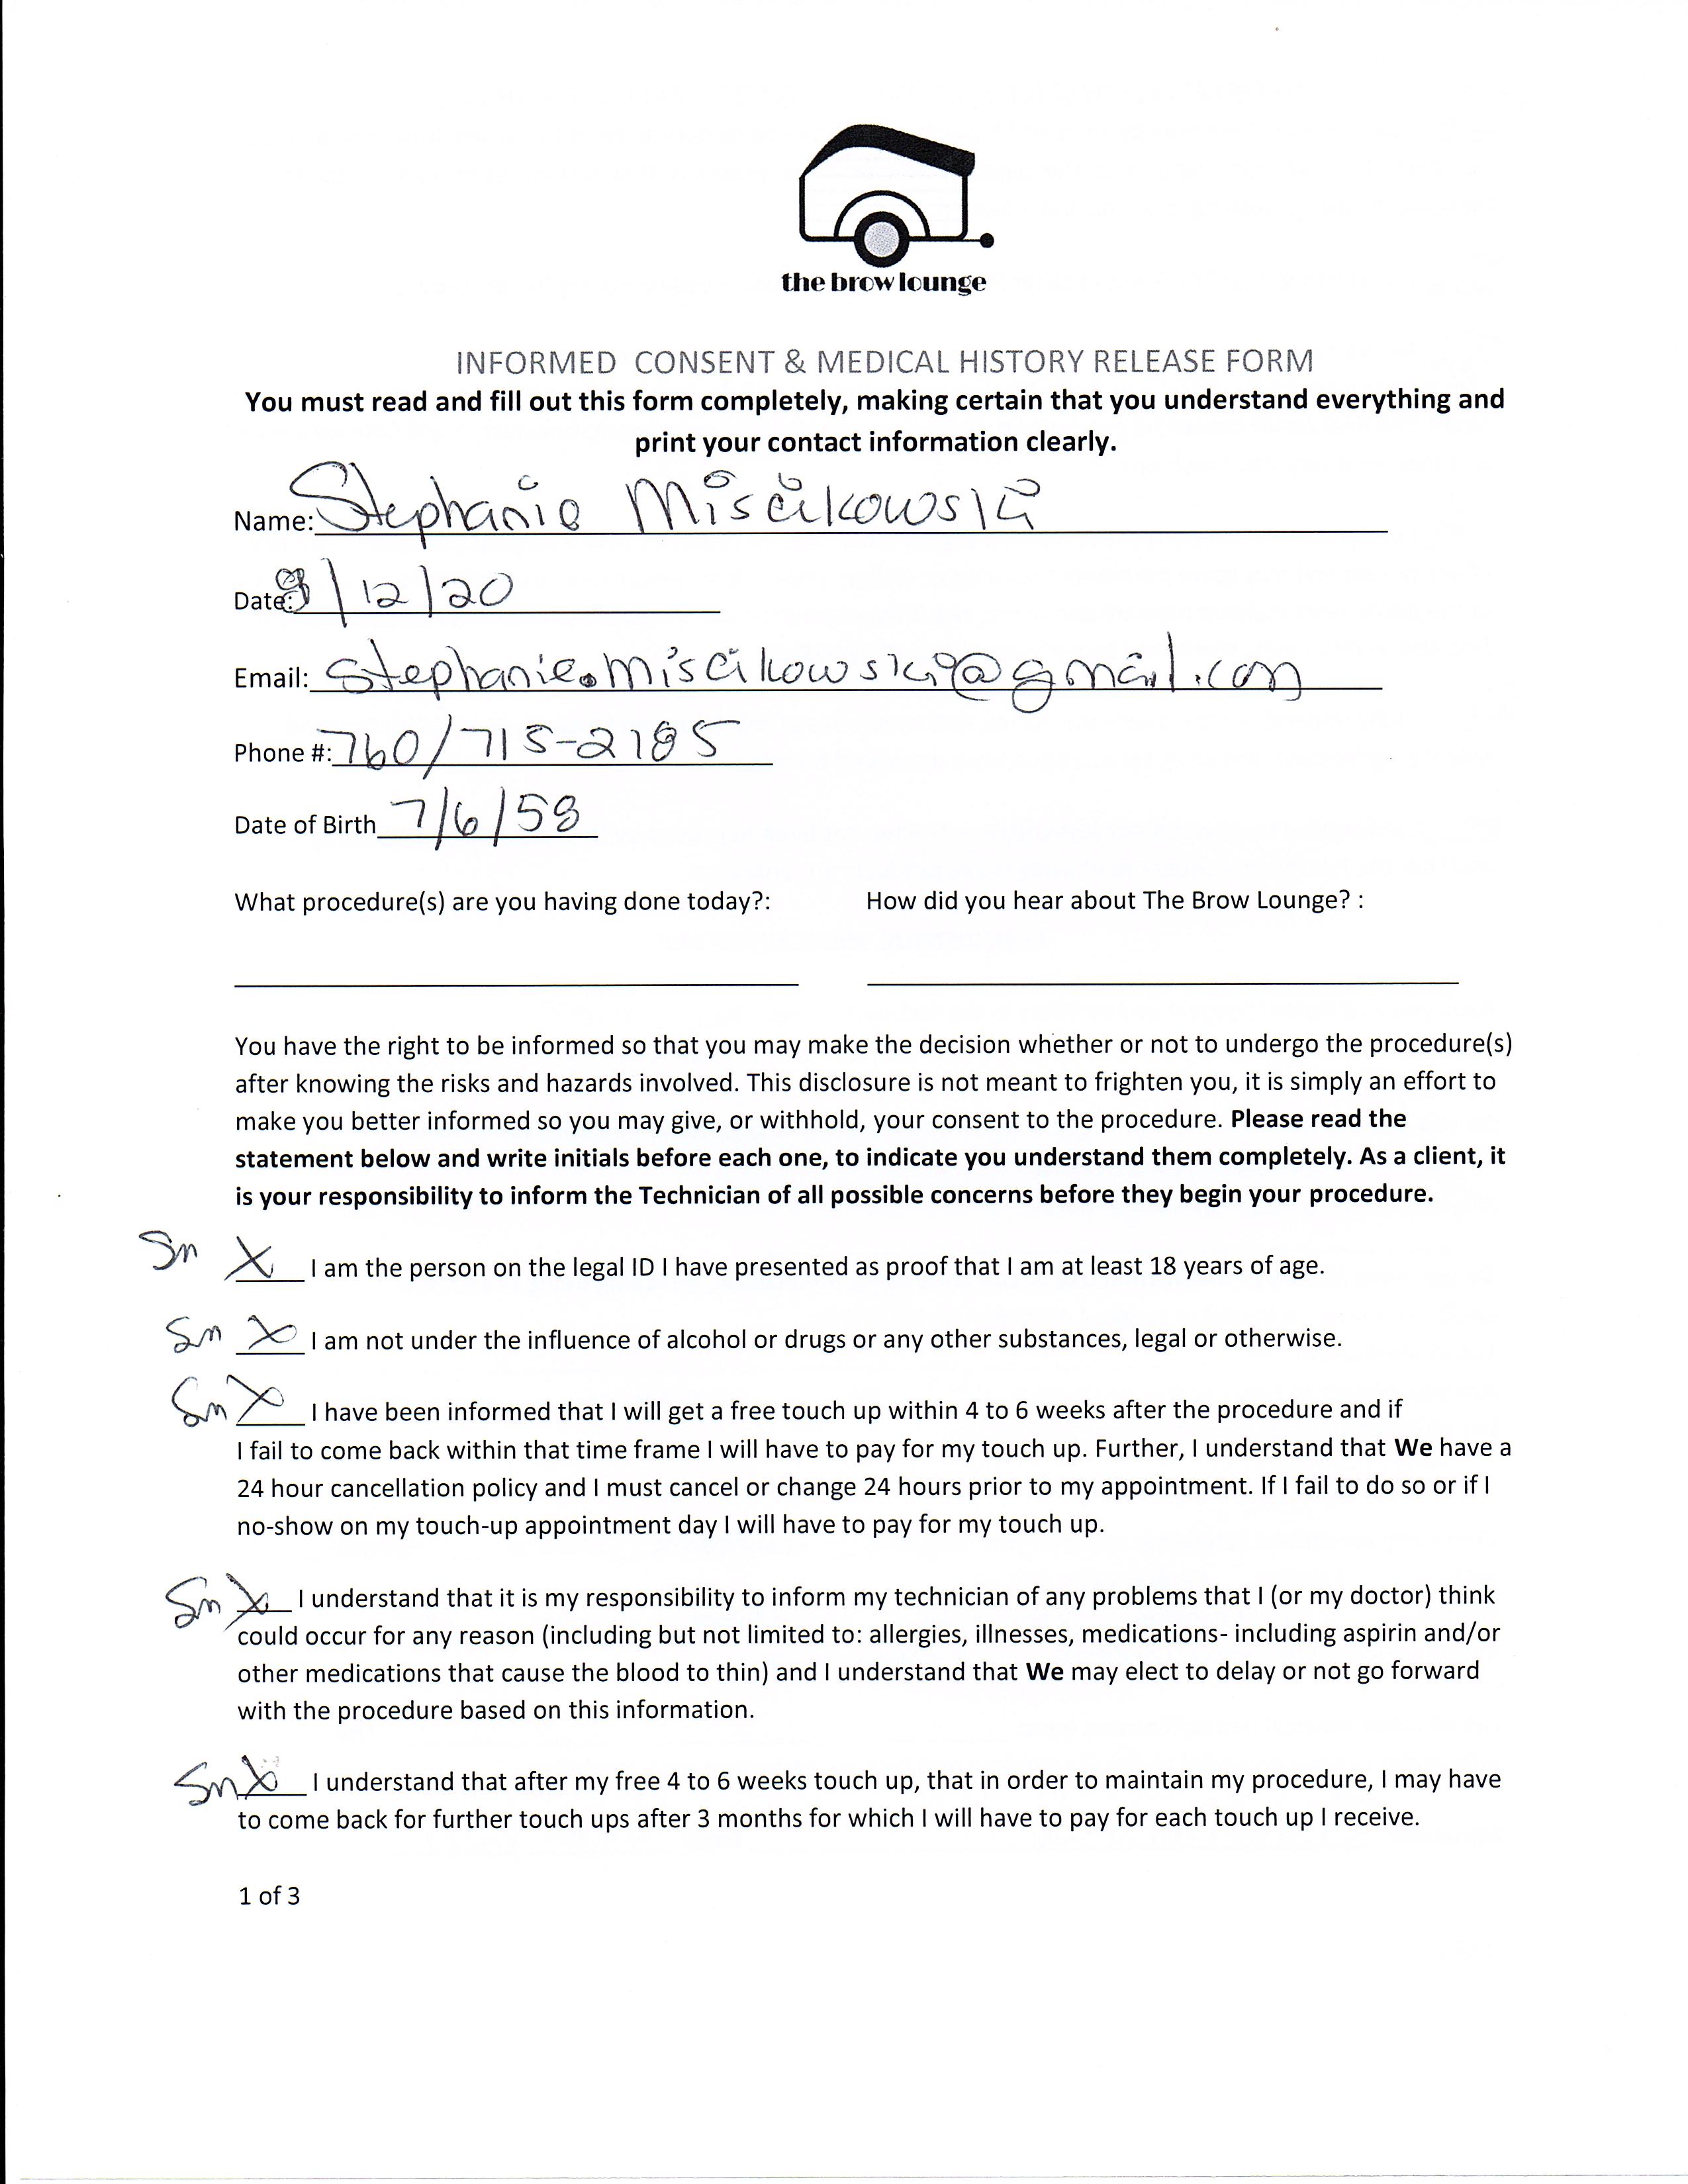 the brow lounge
INFORMED CONSENT & MEDICAL HISTORY RELEASE FORM
You must read and fill out this form completely, making certain that you understand everything and
print your contact information clearly.
Name: Stephanie Miscikowski
Date: 8/12/20
Email: stephanie.miscikowski@gmail.com
Phone #: 760/715-2185
Date of Birth 7/6/58
What procedure(s) are you having done today?: How did you hear about The Brow Lounge? :
You have the right to be informed so that you may make the decision whether or not to undergo the procedure(s)
after knowing the risks and hazards involved. This disclosure is not meant to frighten you, it is simply an effort to
make you better informed so you may give, or withhold, your consent to the procedure. Please read the
statement below and write initials before each one, to indicate you understand them completely. As a client, it
is your responsibility to inform the Technician of all possible concerns before they begin your procedure.
Sm X I am the person on the legal ID I have presented as proof that I am at least 18 years of age.
Sm X I am not under the influence of alcohol or drugs or any other substances, legal or otherwise.
Sm X I have been informed that I will get a free touch up within 4 to 6 weeks after the procedure and if
I fail to come back within that time frame I will have to pay for my touch up. Further, I understand that We have a
24 hour cancellation policy and I must cancel or change 24 hours prior to my appointment. If I fail to do so or if I
no-show on my touch-up appointment day I will have to pay for my touch up.
Sm X I understand that it is my responsibility to inform my technician of any problems that I (or my doctor) think
could occur for any reason (including but not limited to: allergies, illnesses, medications- including aspirin and/or
other medications that cause the blood to thin) and I understand that We may elect to delay or not go forward
with the procedure based on this information.
Sm X I understand that after my free 4 to 6 weeks touch up, that in order to maintain my procedure, I may have
to come back for further touch ups after 3 months for which I will have to pay for each touch up I receive.
1 of 3